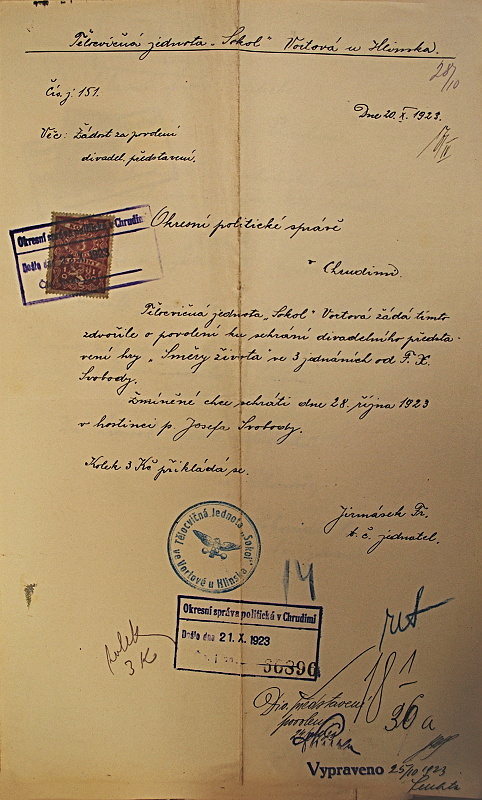 Tělocvičná jednota „Sokol" Vortová u Hlinska.
28/10
Čís. j: 151.
Dne 20. X. 1923.
Věc: Žádost za povolení
divadel. představení.
Okresní politické správě
v Chrudimi.
Okresní správa politická v Chrudimi
Došlo dne
Tělocvičná jednota „Sokol" Vortová žádá tímto
zdvořile o povolení ku sehrání divadelního předsta-
vení hry „Směry života" ve 3 jednáních od F. X.
Svobody.
Zmíněné chce sehráti dne 28. října 1923
v hostinci p. Josefa Svobody.
Kolek 3 Kč přikládá se.
Jirmásek Fr.
t. č. jednatel.
Tělocvičná Jednota „Sokol"
ve Vortové u Hlinska
14
Okresní správa politická v Chrudimi
Došlo dne 21. X. 1923
30390
kolek
3 K
Div. představení
povoleno
18/1
36a
Vypraveno 25/10 1923